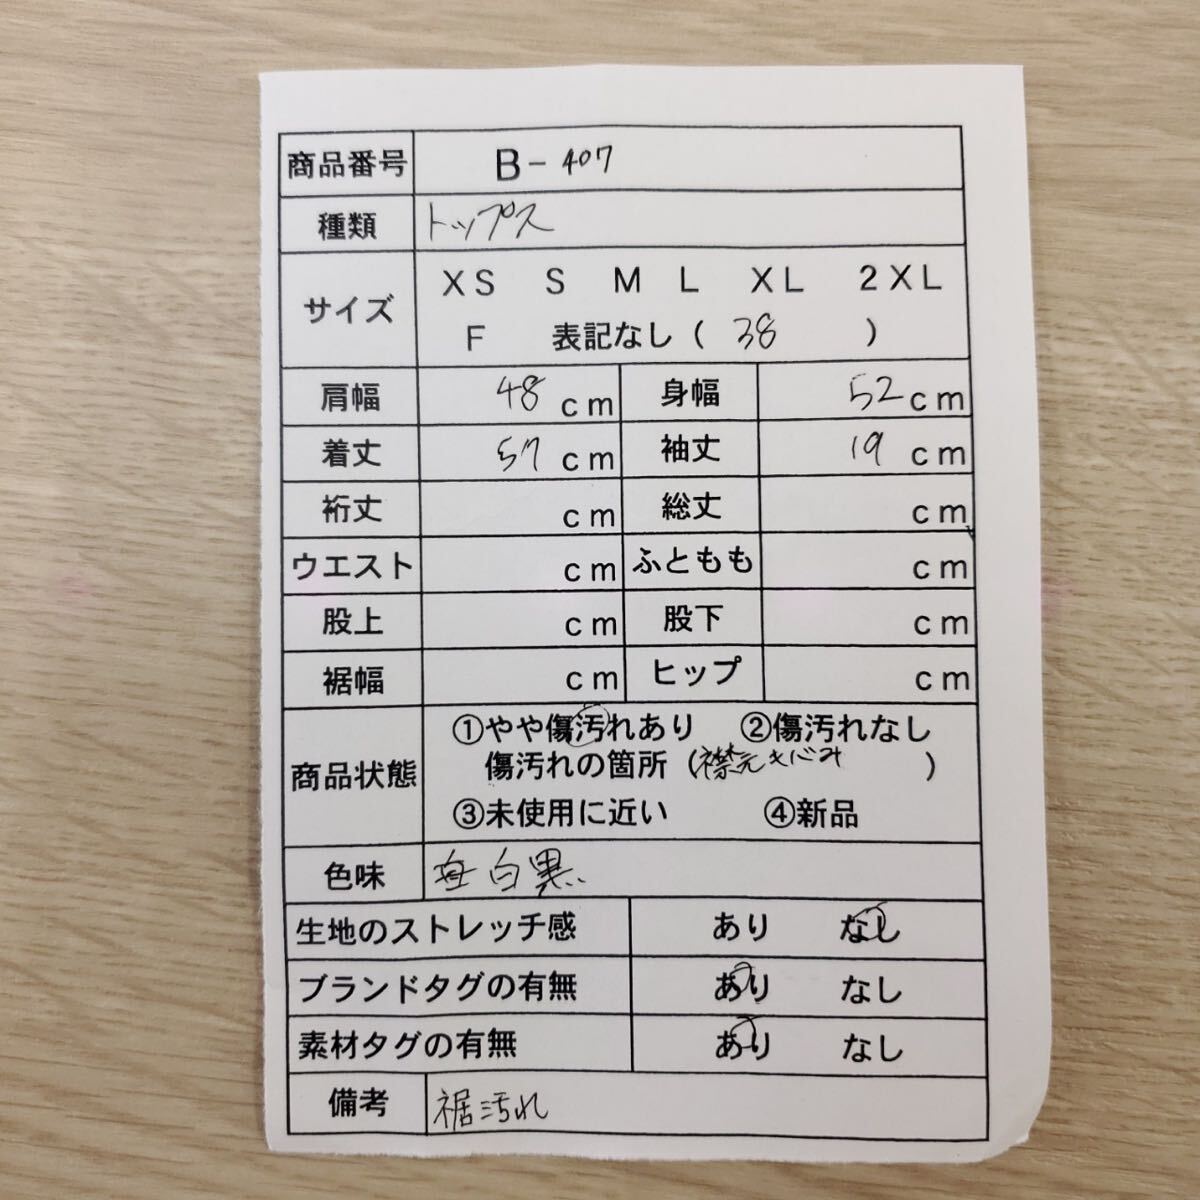 商品番号 B-407
種類 トップス
サイズ XS S M L XL 2XL
F 表記なし( 38 )
肩幅 48 cm 身幅 52 cm
着丈 57 cm 袖丈 19 cm
裄丈 cm 総丈 cm
ウエスト cm ふともも cm
股上 cm 股下 cm
裾幅 cm ヒップ cm
商品状態 ①やや傷汚れあり ②傷汚れなし
傷汚れの箇所(襟元きばみ )
③未使用に近い ④新品
色味 白黒
生地のストレッチ感 あり なし
ブランドタグの有無 あり なし
素材タグの有無 あり なし
備考 裾汚れ